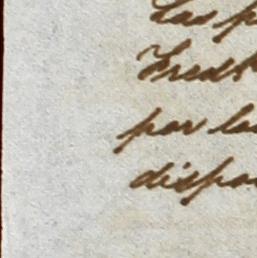 Las p
Fredk
por la
dispo